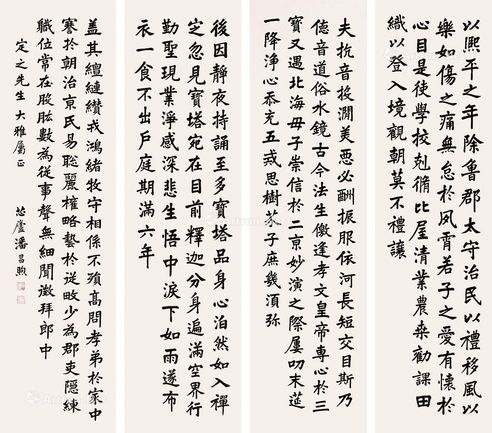 以熙平之年除魯郡太守治民以禮移風以
樂如傷之痛無怠於夙霄若子之愛有懷於
心目是使學校剋脩比屋清業農桒勸課田
織以登入境觀朝莫不禮讓
夫抗音投澗美惡必酬振服依河長短交目斯乃
德音道俗水鏡古今法生儌逢孝文皇帝專心於三
寶又遇北海母子崇信於二京妙演之際屢叨末莚
一降淨心忝充五戒思樹芥子庶幾須弥
後因靜夜持誦至多寶塔品身心泊然如入禪
定忽見寶塔宛在目前釋迦分身遍滿空界行
勤聖現業淨感深悲生悟中淚下如雨遂布
衣一食不出戶庭期滿六年
蓋其繵縺纘戎鴻緒牧守相係不殞高問孝弟於家中
謇於朝治京氏易聦麗權略藝於從畋少為郡吏隱練
職位常在股肱數為從事聲無細聞徵拜郎中
定之先生大雅属正
芯廬潘昌煦